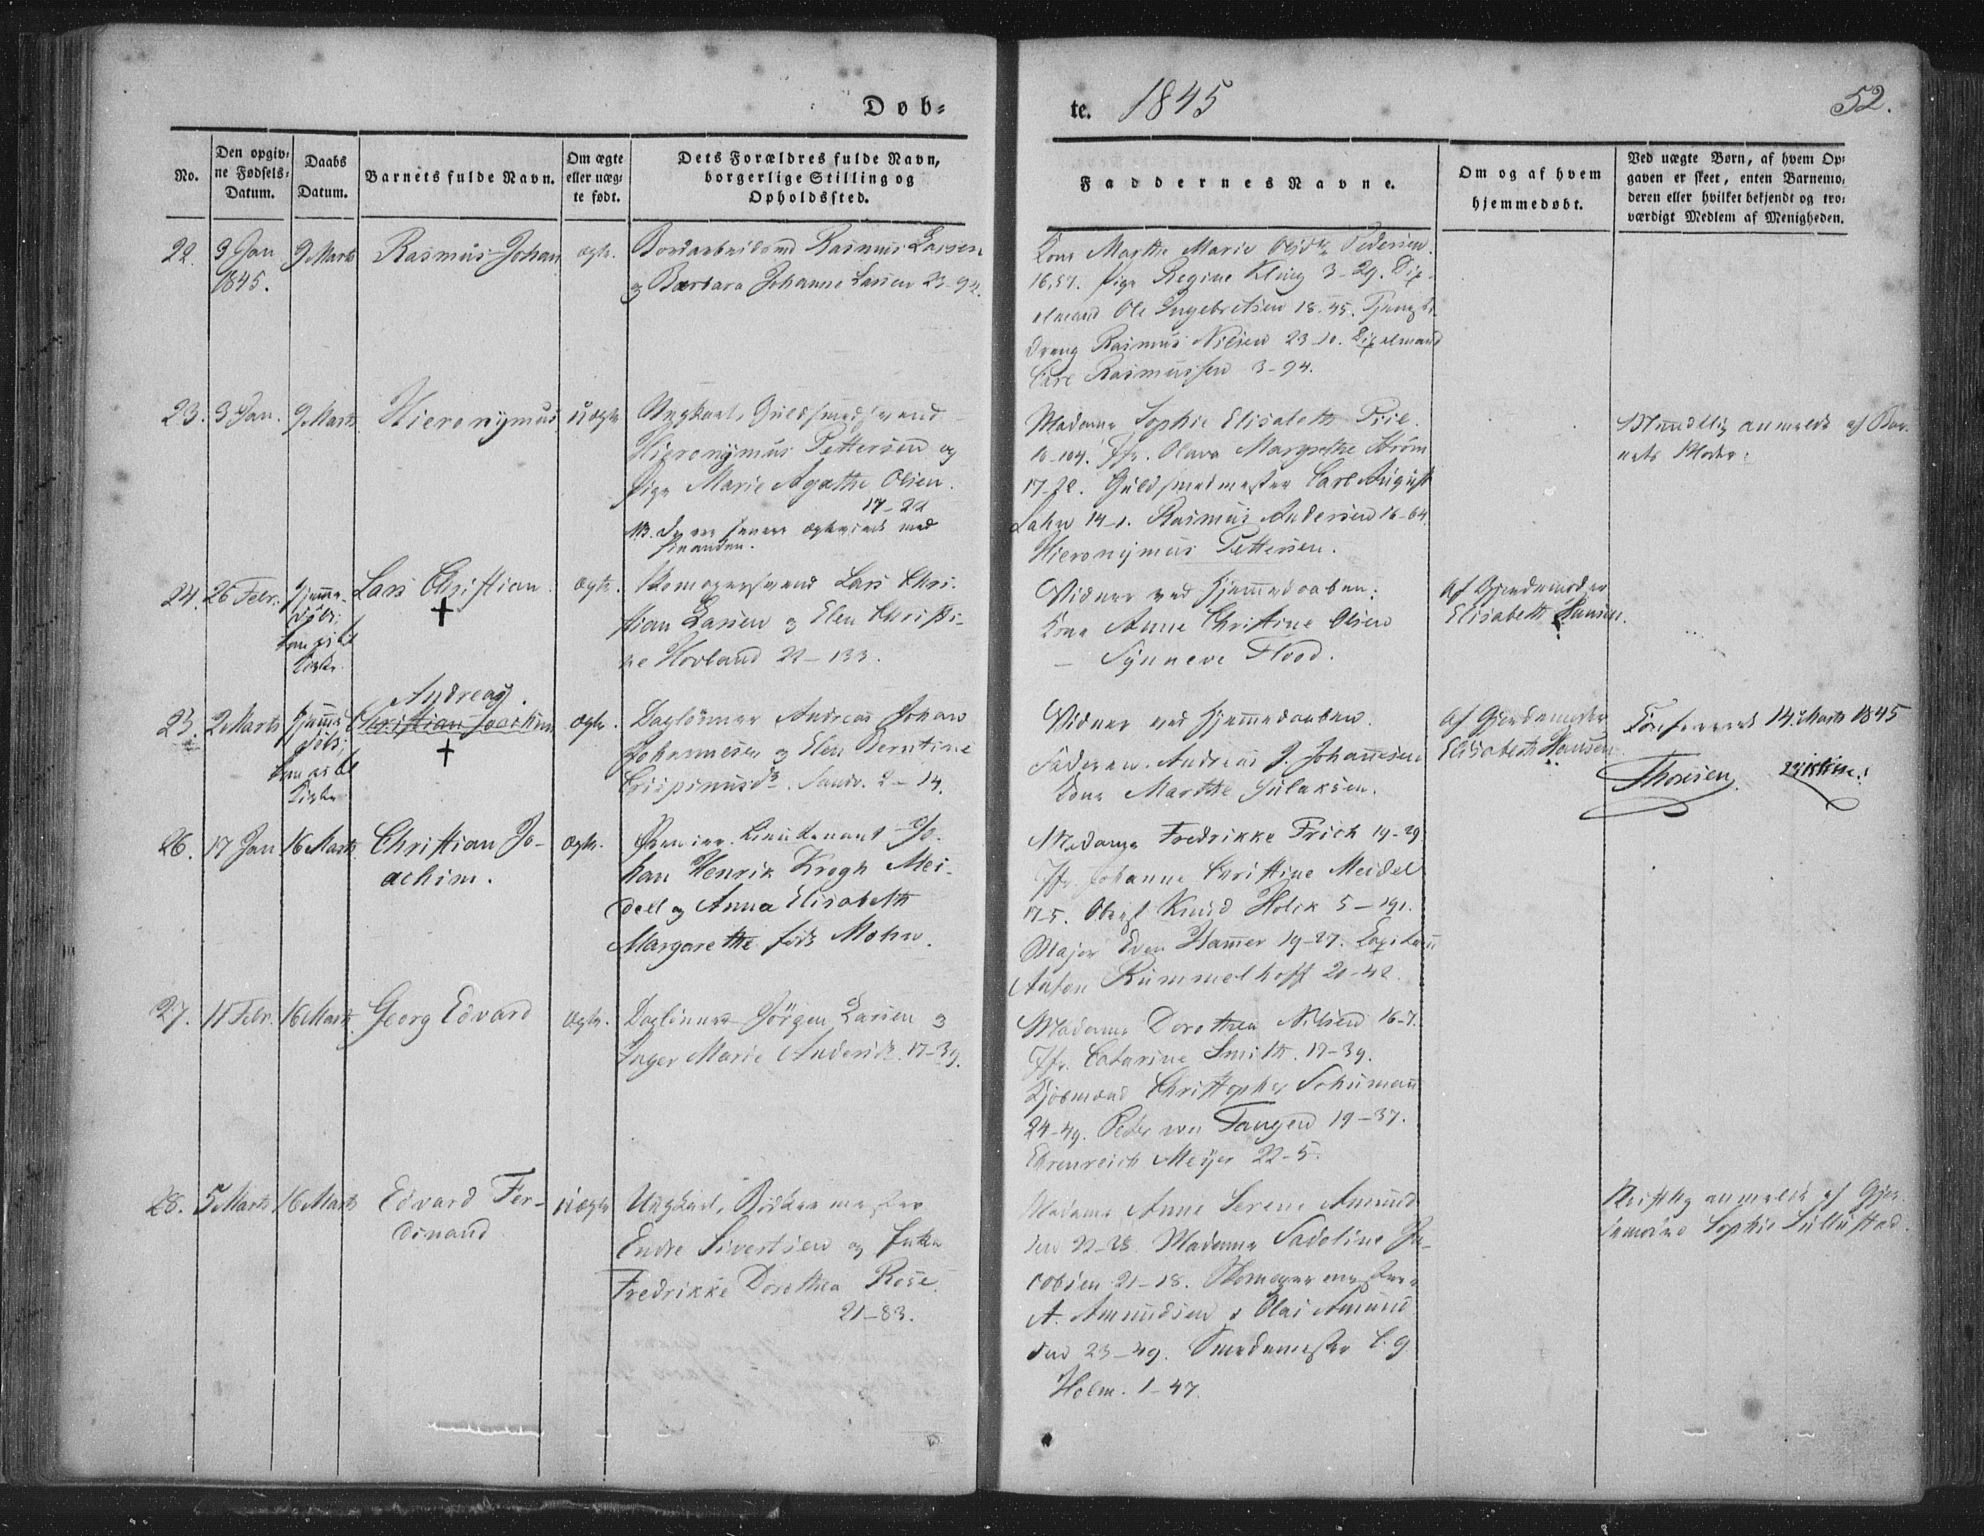 Døb-
te. 1845
52.
No.
Den opgiv-
ne Fødsels-
Datum.
Daabs
Datum.
Barnets fulde Navn.
Om ægte
eller uæg-
te født.
Dets Forældres fulde Navn,
borgerlige Stilling og
Opholdssted.
Faddernes Navne.
Om og af hvem
hjemmedøbt.
Ved uægte Børn, af hvem Op-
gaven er skeet, enten Barnemo-
deren eller hvilket bekjendt og tro-
værdigt Medlem af Menigheden.
22.
3 Jan
1845.
9 Marts
Rasmus Johan
ægte.
Rasmus Larsen
og Barbara Johanne Larsen 23-94.
Kone Marthe Marie Pedersen.
16,57. Pige Regine Kling 3-29.
Ole Ingebretsen 18-45.
dreng Rasmus Nilsen 23-10.
Rasmussen 3-94.
23.
3 Jan.
9 Marts
Hieronymus
uægte
Ungkarl, Guldsmedsvend
Hieronymus Pettersen og
Pige Marie Agathe Olsen.
17-22
NB. De ere senere ægteviede med
hinanden.
Madame Sophie Elisabeth Piil.
10-104. Jfr. Olava Margrethe Strøm
17-22. Guldsmedmester Carl August
Lahn 14-1. Rasmus Andersen 16-64.
Hieronymus Pettersen.
Mundtlig anmeldt af Bar-
nets Moder.
24.
26 Febr.
Hjemme-
døbt;
kom ei til
Kirke.
Lars Christian
†
ægte.
Skomagersvend Lars Chri-
stian Larsen og Elen Christi-
ne Hovland 22-133.
Vidner ved Hjemmedaaben:
Kone Anne Christine Olsen
— Synneve Flood.
Af Gjordemoder
Elisabeth Hansen.
25.
2 Marts
Hjemme
døbt;
kom ei til
Kirke
Andreas.
Christian Joachim
†
ægte.
Daglønner Andreas Johan
Johannesen og Elen Berntine
Crispinusdr. Sandv. 2-14.
Vidner ved Hjemmedaaben.
Faderen Andreas J. Johannesen
Kone Marthe
Af Gjordemoder
Elisabeth Hansen
14 Marts 1845
Thorsen
26.
17 Jan
16 Marts
Christian Jo-
achim.
ægte.
Premier Lieutenant Jo-
han Henrik Krogh Mei-
dell og Anna Elisabeth
Margarethe født Mohn.
Madame Fredrikke Frich 19-29
Jfr. Johanne Christine Meidel
17-5. Knud Holck 5-191.
Major Even Hammer 19-27.
Anton Rummelhoff 20-42.
27.
11 Febr.
16 Marts
Georg Edvard
ægte.
Daglønner Jørgen Larsen og
Inger Marie Andersdr. 17-39.
Madame Dorothea Nilsen 16-7.
Jfr. Catarine Smith. 17-39.
Kjøbmand Christopher Schumann
24-49. Peder von Tangen 19-37.
Ehrenreich Meyer 22-5.
28.
5 Marts
16 Marts
Edvard Fer-
dinand
uægte
Ungkarl, Bødkermester
Endre Sivertsen og Enke
Fredrikke Dorothea Rose.
21-83.
Madame Anne Serene Amund-
sen 22-28. Madame Sadoline Ja-
cobsen 21-18. Skomagermester
A. Amundsen Olai Amund-
sen 23-49. Smedemester C. G
Holm. 1-47.
Skriftlig anmeldt af Gjor-
demoder Sophie